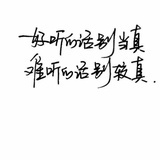 好听的话别当真
难听的话别较真.